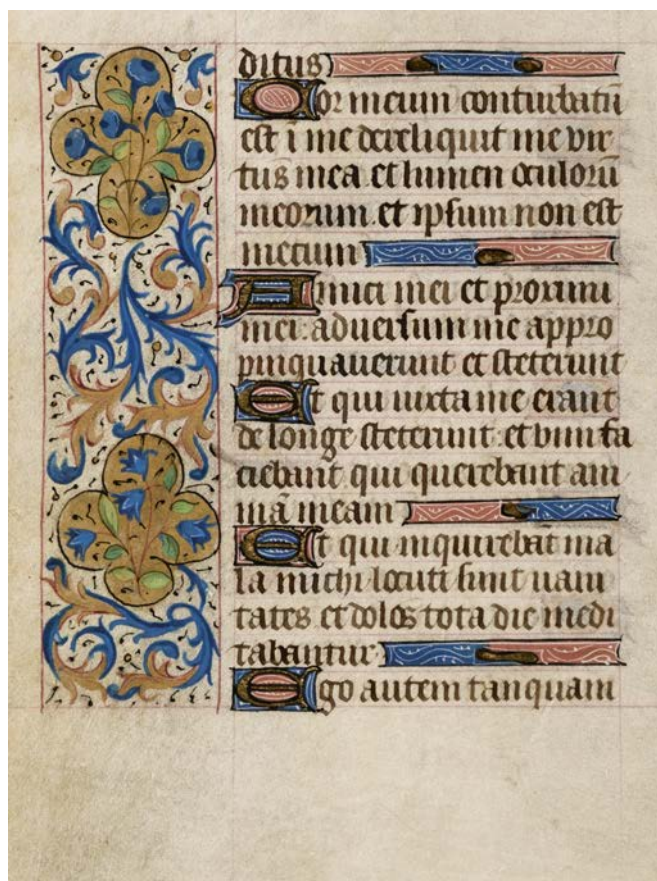 ditus
Cor meum conturbatū
est ī me dereliquit me vir
tus mea et lumen oculorū
meorum. et ipsum non est
mecum
Amici mei et proximi
mei: aduersum me appro
pinquauerunt et steterunt
Et qui iuxta me erant
de longe steterunt: et vim fa
ciebant qui querebant ani
mā meam
Et qui inquirebāt ma
la michi locuti sunt uani
tates et dolos tota die medi
tabantur
Ego autem tanquam